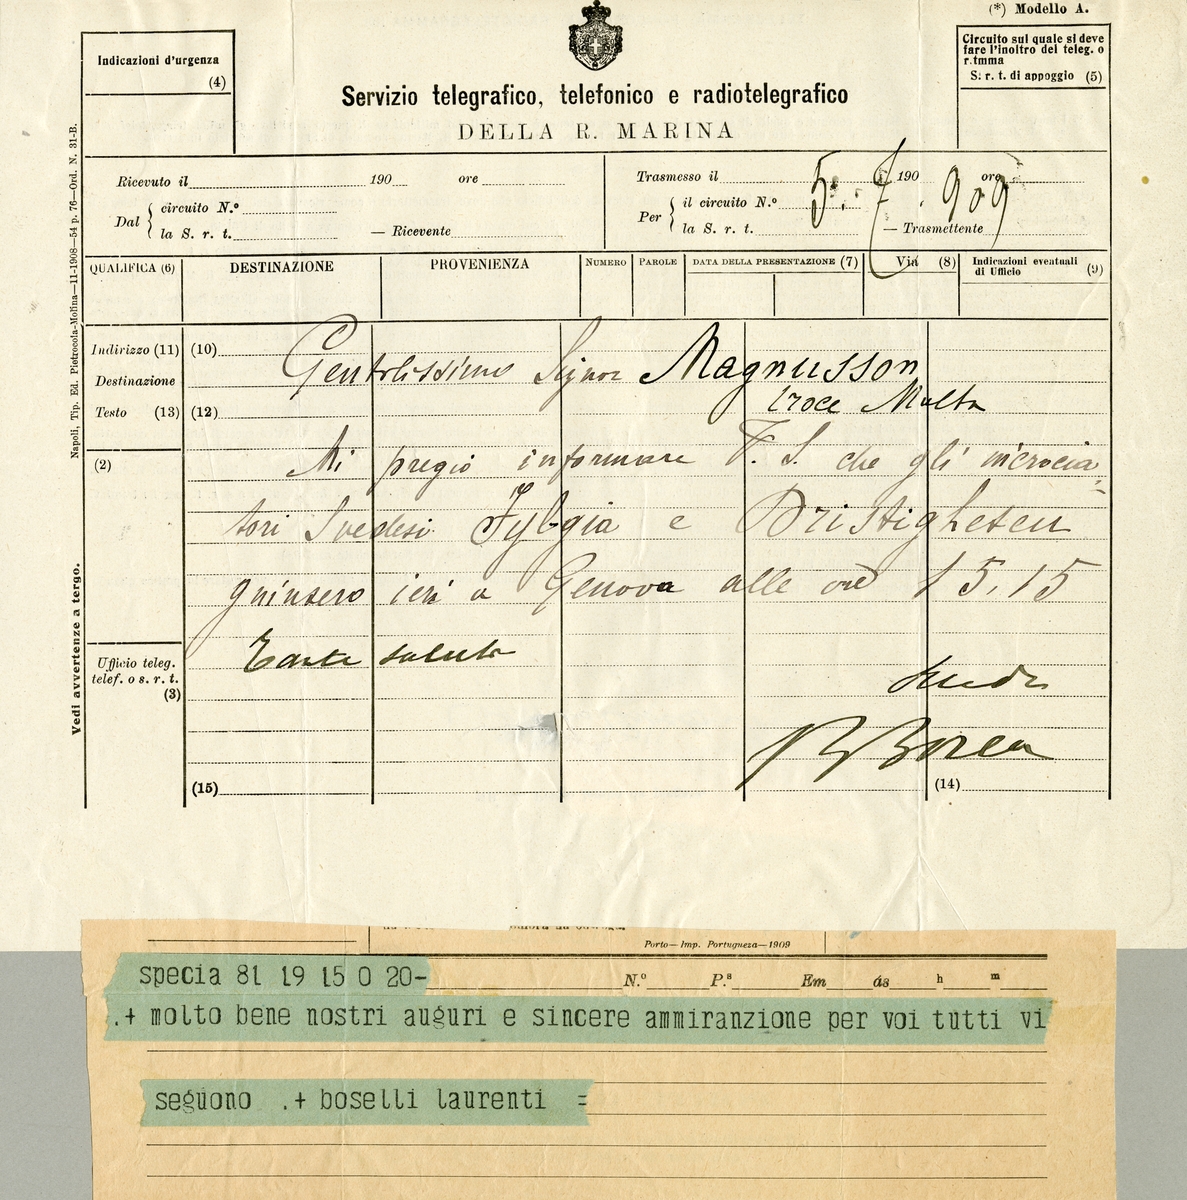 (*) Modello A.
Indicazioni d'urgenza
(4)
Circuito sul quale si deve
fare l'inoltro del teleg. o
r.tmma
S. r. t. di appoggio (5)
Servizio telegrafico, telefonico e radiotelegrafico
DELLA R. MARINA
Ricevuto il 190 ore
Dal { circuito N.º
la S. r. t. — Ricevente
Trasmesso il 190 ore
5. 7. 909
Per { il circuito N.º
la S. r. t. — Trasmettente
QUALIFICA (6) DESTINAZIONE PROVENIENZA NUMERO PAROLE DATA DELLA PRESENTAZIONE (7) Via (8) Indicazioni eventuali
di Ufficio (9)
Indirizzo (11) (10)
Gentilissimo Signor Magnusson
Destinazione
Testo (13) (12)
Croce Malta
(2)
Mi pregio informare V. S. che gli incrocia-
tori Svedesi Fylgia e Dristigheten
giunsero ieri a Genova alle ore 15.15
Ufficio teleg.
telef. o s. r. t.
(3)
Borea
(15) (14)
Napoli, Tip. Ed. Pietrocola-Molina—11-1908—54 p. 76—Ord. N. 31-B.
Vedi avvertenze a tergo.
Porto—Imp. Portugueza—1909
specia 81 19 15 0 20-
N.º P.s Em ás h m
.+ molto bene nostri auguri e sincere ammiranzione per voi tutti vi
seguono .+ boselli laurenti =